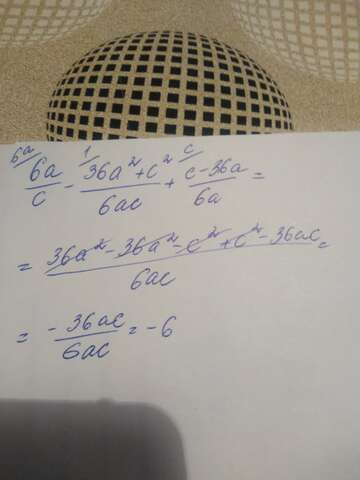 6a/ 6a/c - 1/ (36a² + c²)/6ac + c/ (c - 36a)/6a =
= (36a² - 36a² - c² + c² - 36ac)/6ac =
= -36ac/6ac = -6